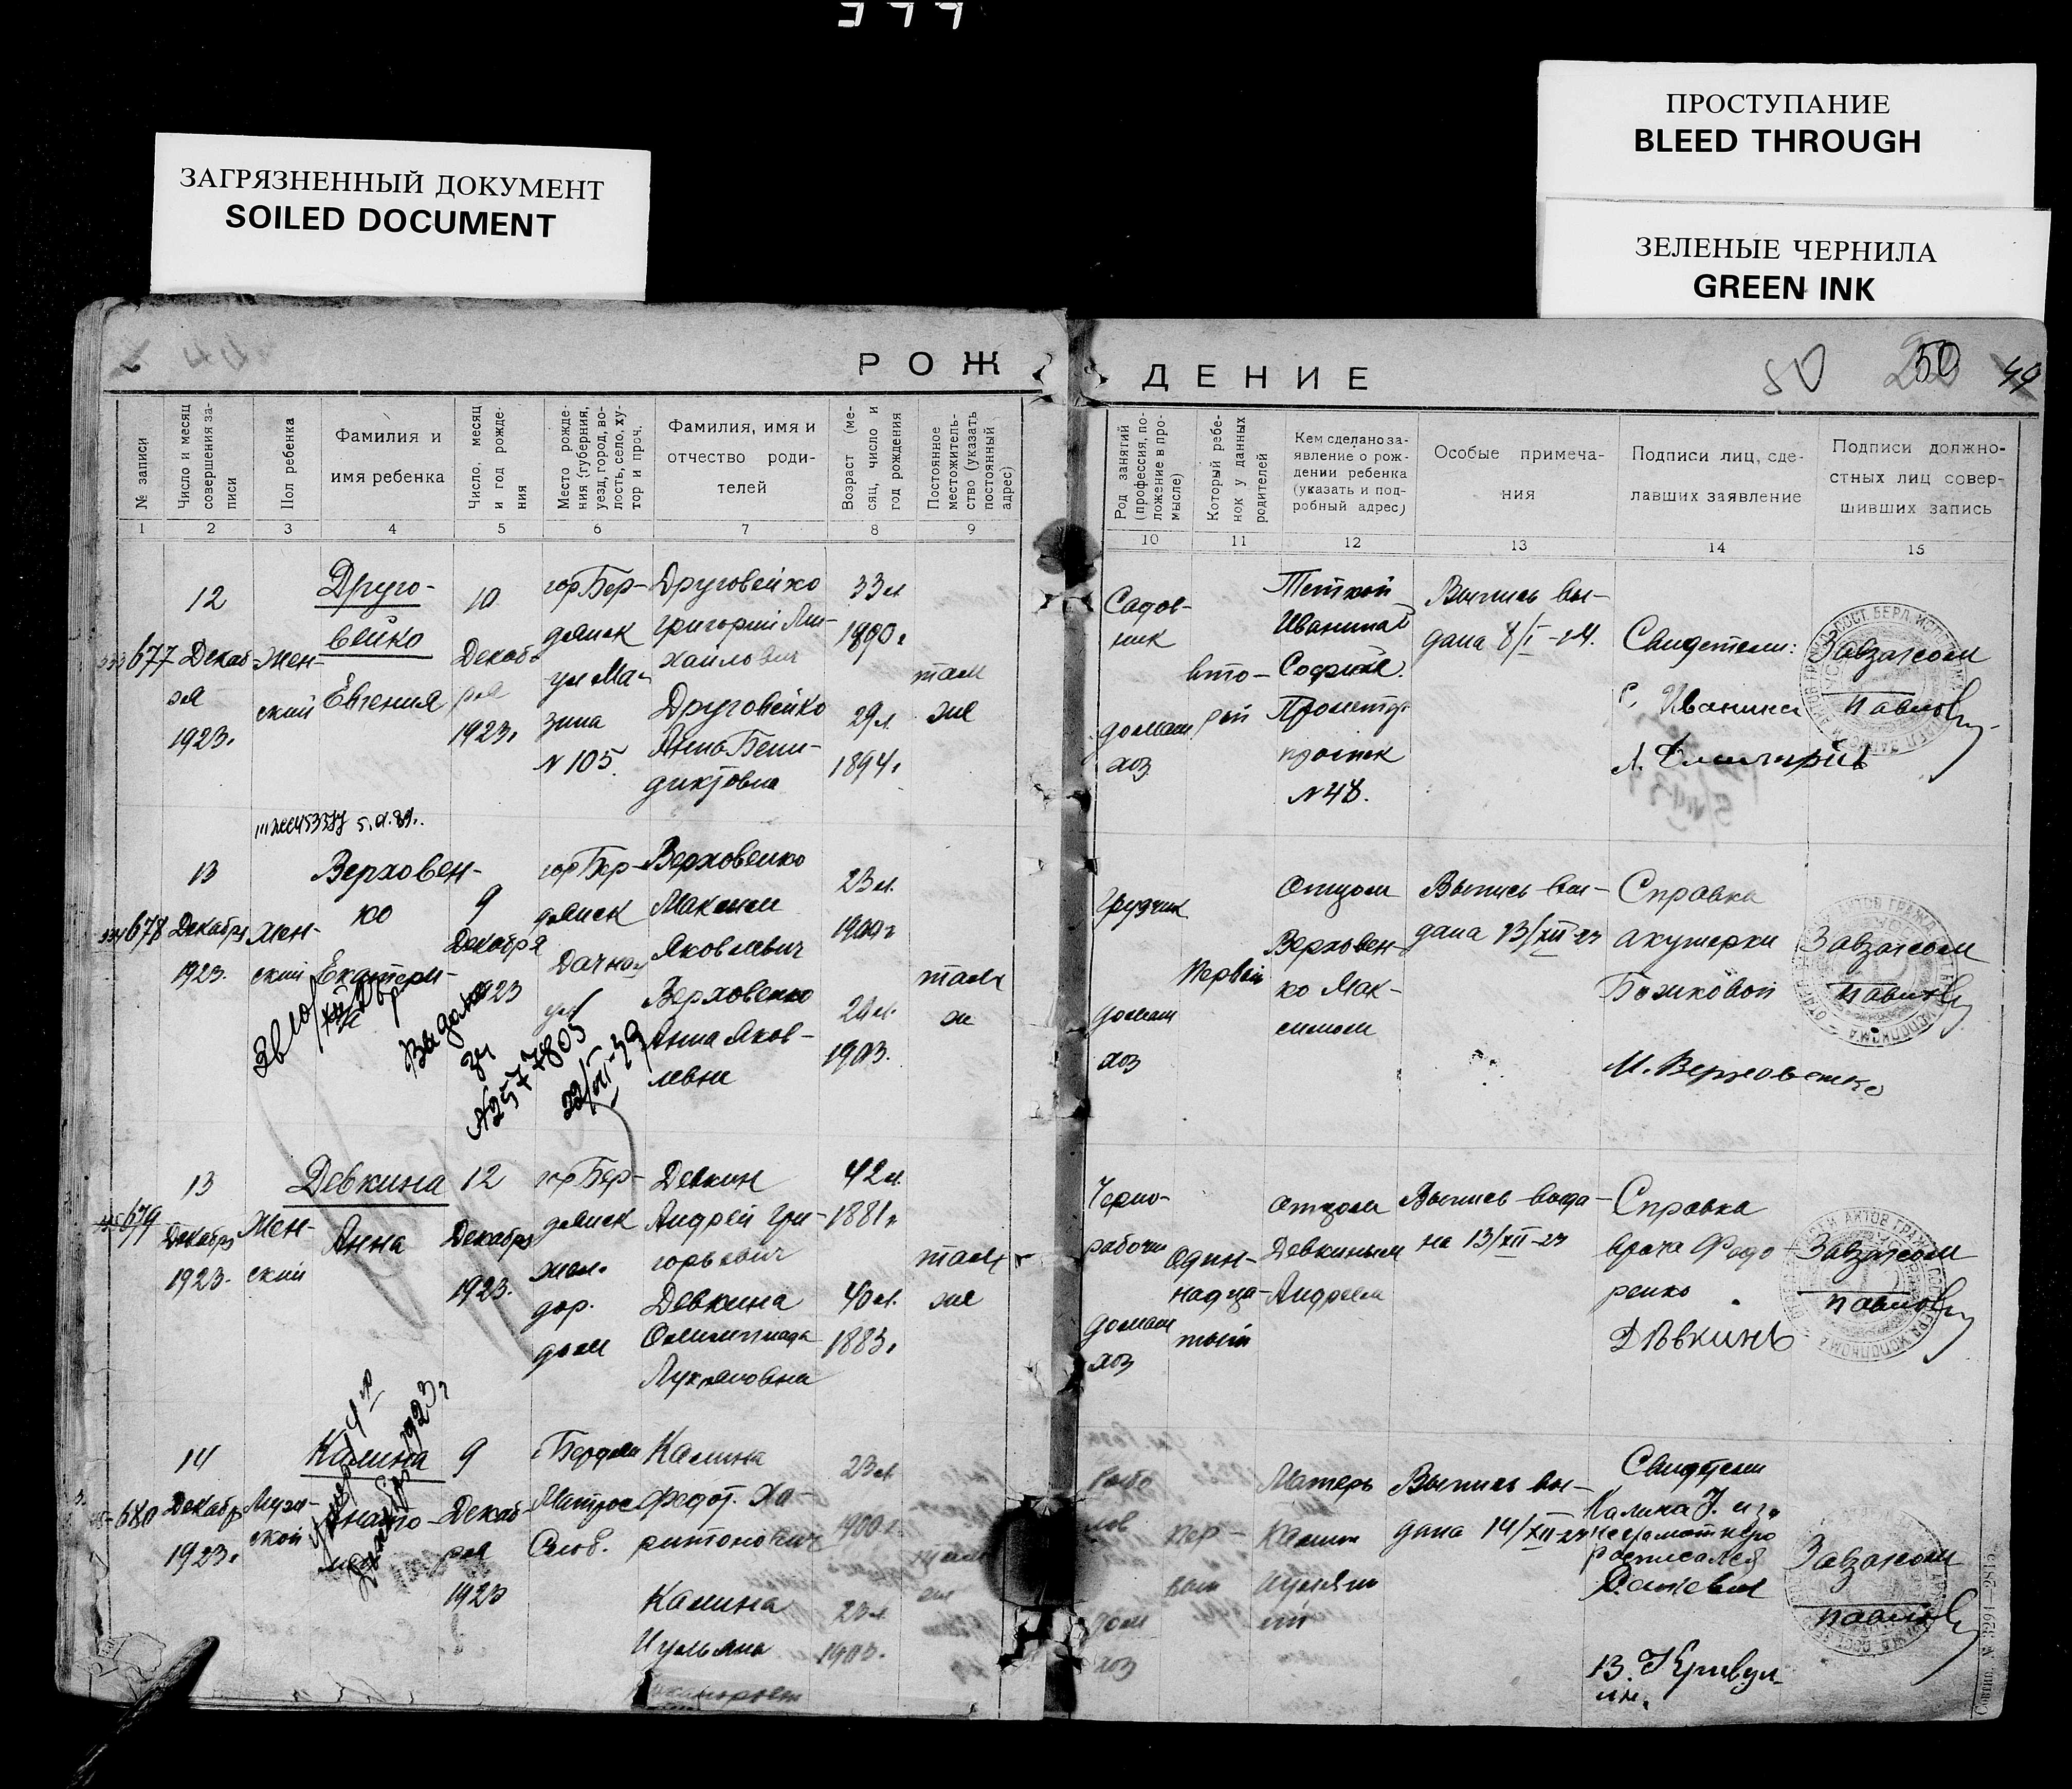 ЗАГРЯЗНЕННЫЙ ДОКУМЕНТ
SOILED DOCUMENT
ПРОСТУПАНИЕ
BLEED THROUGH
ЗЕЛЕНЫЕ ЧЕРНИЛА
GREEN INK
РОЖ
ДЕНИЕ
50
50
49
№ записи
Число и месяц
совершения за-
писи
Пол ребенка
Фамилия и
имя ребенка
Число, месяц
и год рожде-
ния
Место рожде-
ния (губерния,
уезд, город, во-
лость, село, ху-
тор и проч.
Фамилия, имя и
отчество роди-
телей
Возраст (ме-
сяц, число и
год рождения
Постоянное
местожитель-
ство (указать
постоянный
адрес)
Род занятий
(профессия, по-
ложение в про-
мысле)
Который ребе-
нок у данных
родителей
Кем сделано за-
явление о рож-
дении ребенка
(указать и под-
робный адрес)
Особые примеча-
ния
Подписи лиц, сде-
лавших заявление
Подписи должно-
стных лиц совер-
шивших запись
1
2
3
4
5
6
7
8
9
10
11
12
13
14
15
677
12
Декаб
ря
1923.
Жен-
ский
Друго-
вейко
Евгения
10
Декаб-
ря
1923.
гор Бер-
дянск
ул Ма-
зина
N 105.
Друговейко
Григорий Ми-
хайлович
Друговейко
Анна Бени-
диктовна
33 л
1890 г
29 л.
1894 г
там
же
Садов-
ник
домаш
хоз
вто-
рой
Теткой
Иваниной
Софией.
Пролетар.
проезд
N 48.
Выпись вы-
дана 8/I-24.
Свидетели:
Иванина
Завзагсом
Павлов
5.XI.81.
678
13
Декабря
1923.
Жен-
ский
Верховен-
ко
Екатери-
на
9
Декабря
1923
гор Бер-
дянск
Дачная
ул
Верховенко
Максим
Яковлевич
Верховенко
Анна Яков-
левна
23 л.
1900 г
20 л.
1903.
там
ж
Грузчик
домаш
хоз
Первый
Отцом
Верховен-
ко Мак-
симом
Выпись вы-
дана 13/XII-23
Справка
акушерки
Божковой
М. Верховенко
Завзагсом
Павлов
Выдано
679
13
Декабря
1923.
Жен-
ский
Девкина
Анна
12
Декабря
1923.
гор Бер-
дянск
жел.
дор.
дом
Девкин
Андрей Гри-
горьевич
Девкина
Олимпиада
Лукьяновна
42 л.
1881 г
40 л.
1883 г
там
же
Черно-
рабочий
домаш
хоз
Один-
надца-
тый
Отцом
Девкиным
Андреем
Выпись выда-
на 13/XII-23
Справка
врача Федо
ренко
Дѣвкинъ
Завзагсом
Павлов
680
14
Декабря
1923.
Муж-
ской
Калина
Анато-
лий
умер
1923 г
9
Декаб-
ря
1923
Бердян
Матрос
Слоб.
Калина
Федот. Ха-
ритонович
Калина
Иульяна
23 л
1900 г
23 л.
1900.
там
же
дом
хоз
пер-
вый
Матерь
Калин
Иульян
ий
Выпись вы-
дана 14/XII-23
Свидетели
Калина У. и за
неграмотную
расписался
13. Кривул-
ин.
Завзагсом
Павлов